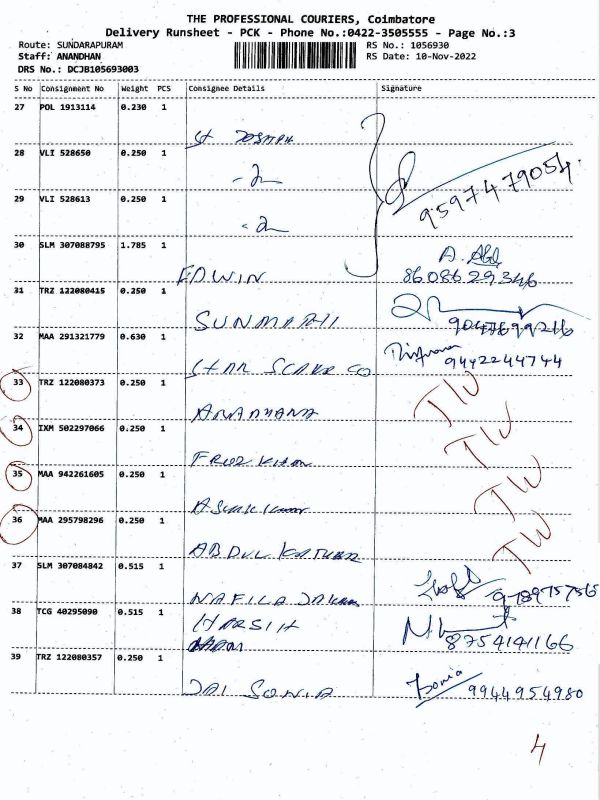 THE PROFESSIONAL COURIERS, Coimbatore
Delivery Runsheet - PCK - Phone No.:0422-3505555 - Page No.:3
Route: SUNDARAPURAM RS No.: 1056930
Staff: ANANDHAN RS Date: 10-Nov-2022
DRS No.: DCJB105693003
S No Consignment No Weight PCS Consignee Details Signature
27 POL 1913114 0.230 1
St
28 VLI 528650 0.250 1
9597479054
29 VLI 528613 0.250 1
30 SLM 307088795 1.785 1
EDWIN 8608629346
31 TRZ 122080415 0.250 1
SUNMATHI 9047699216
32 MAA 291321779 0.630 1
STAR CO 9442244744
33 TRZ 122080373 0.250 1
TW
34 IXM 502297066 0.250 1
KHAN TW
35 MAA 942261605 0.250 1
TW
36 MAA 295798296 0.250 1
ABDUL TW
37 SLM 307084842 0.515 1
NAFILA 978975756
38 TCG 40295090 0.515 1
HARSIH
8754141166
39 TRZ 122080357 0.250 1
JAI SONIA Sonia 9944954980
4